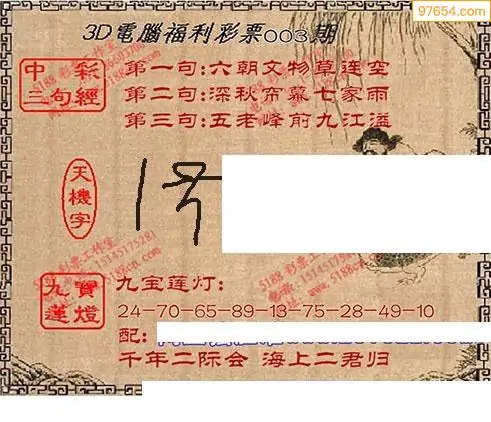 97654.com
3D電腦福利彩票003期
中彩
三句經
第一句:六朝文物草莲空
第二句:深秋帘幕七家雨
第三句:五老峰前九江溢
天機字
5188 彩票工作室
15145175281
九寶
蓮燈
九宝莲灯:
24-70-65-89-13-75-28-49-10
配:
千年二际会 海上二君归